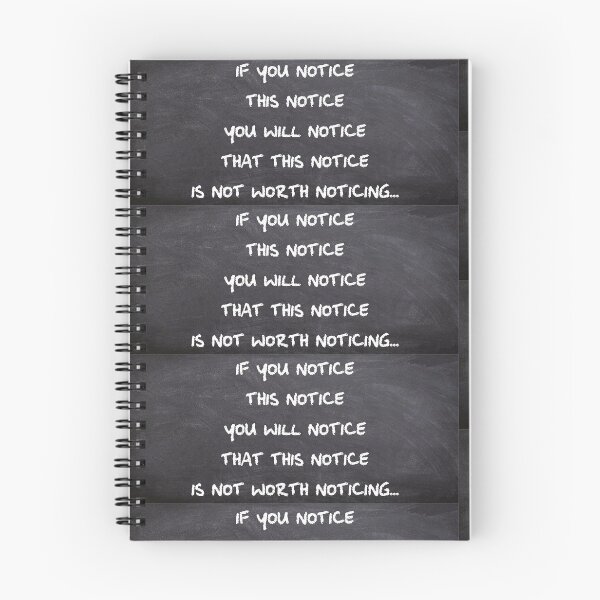 IF YOU NOTICE
THIS NOTICE
YOU WILL NOTICE
THAT THIS NOTICE
IS NOT WORTH NOTICING...
IF YOU NOTICE
THIS NOTICE
YOU WILL NOTICE
THAT THIS NOTICE
IS NOT WORTH NOTICING...
IF YOU NOTICE
THIS NOTICE
YOU WILL NOTICE
THAT THIS NOTICE
IS NOT WORTH NOTICING...
IF YOU NOTICE